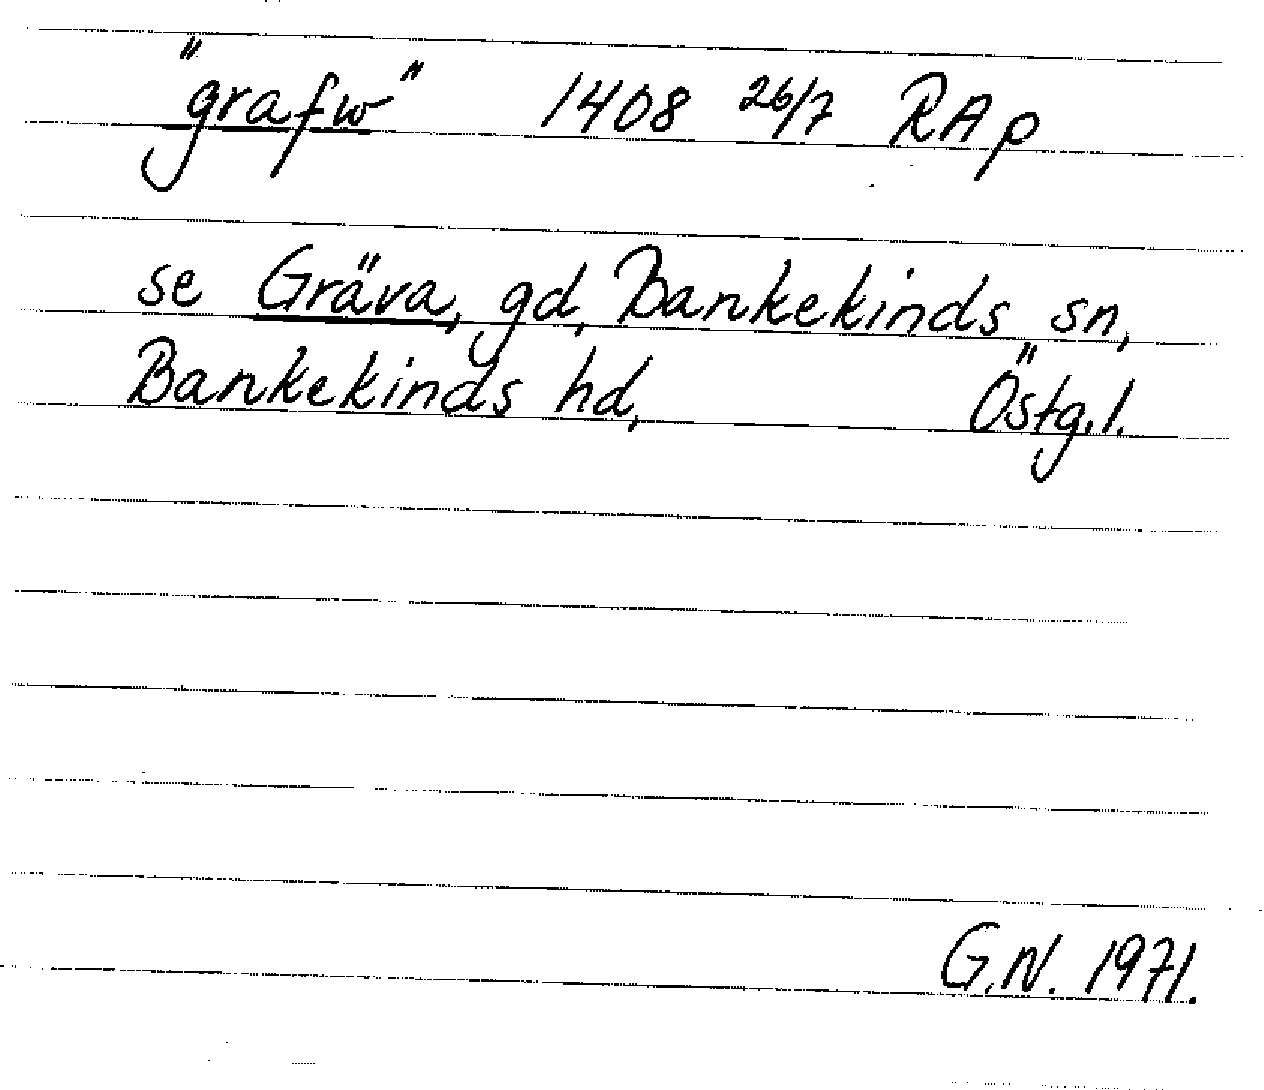 "grafw" 1408 26/7 RAp
se Gräva, gd, Bankekinds sn,
Bankekinds hd, Östg.l.
G.N. 1971.